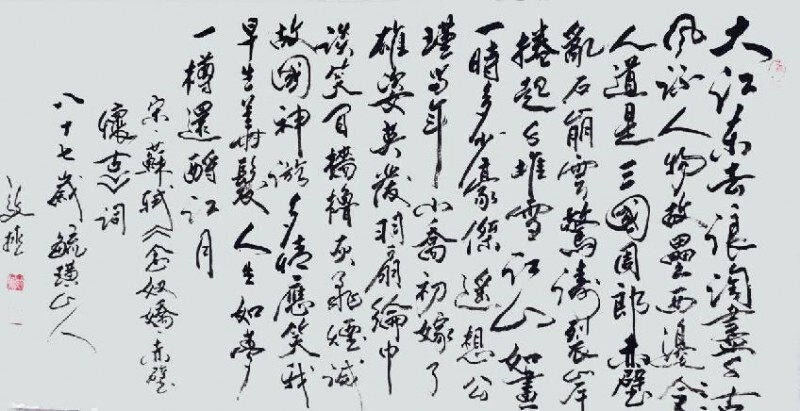 大江東去浪淘盡千古
風流人物故壘西邊
人道是三國周郎赤壁
亂石崩雲驚濤裂岸
捲起千堆雪江山如畫
一時多少豪傑遙想公
瑾當年小喬初嫁了
雄姿英發羽扇綸巾
談笑間檣櫓灰飛煙滅
故國神游多情應笑我
早生華髮人生如夢
一樽還酹江月
宋·蘇軾《念奴嬌·赤壁
懷古》詞
八十七歲毓璜山人